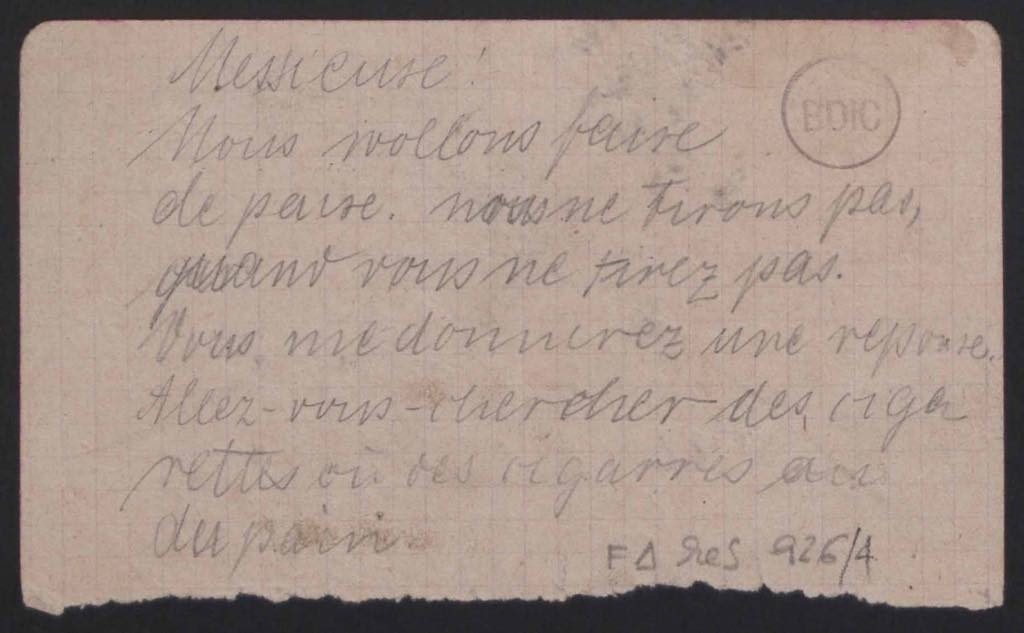 Messieurs!
BDIC
Nous wollons faire
de paise. nous ne tirons pas,
quand vous ne tirez pas.
Vous me donnerez une reponse.
Allez-vous-chercher des ciga
rettes où des cigarres
du pain
F Δ Res 926/4